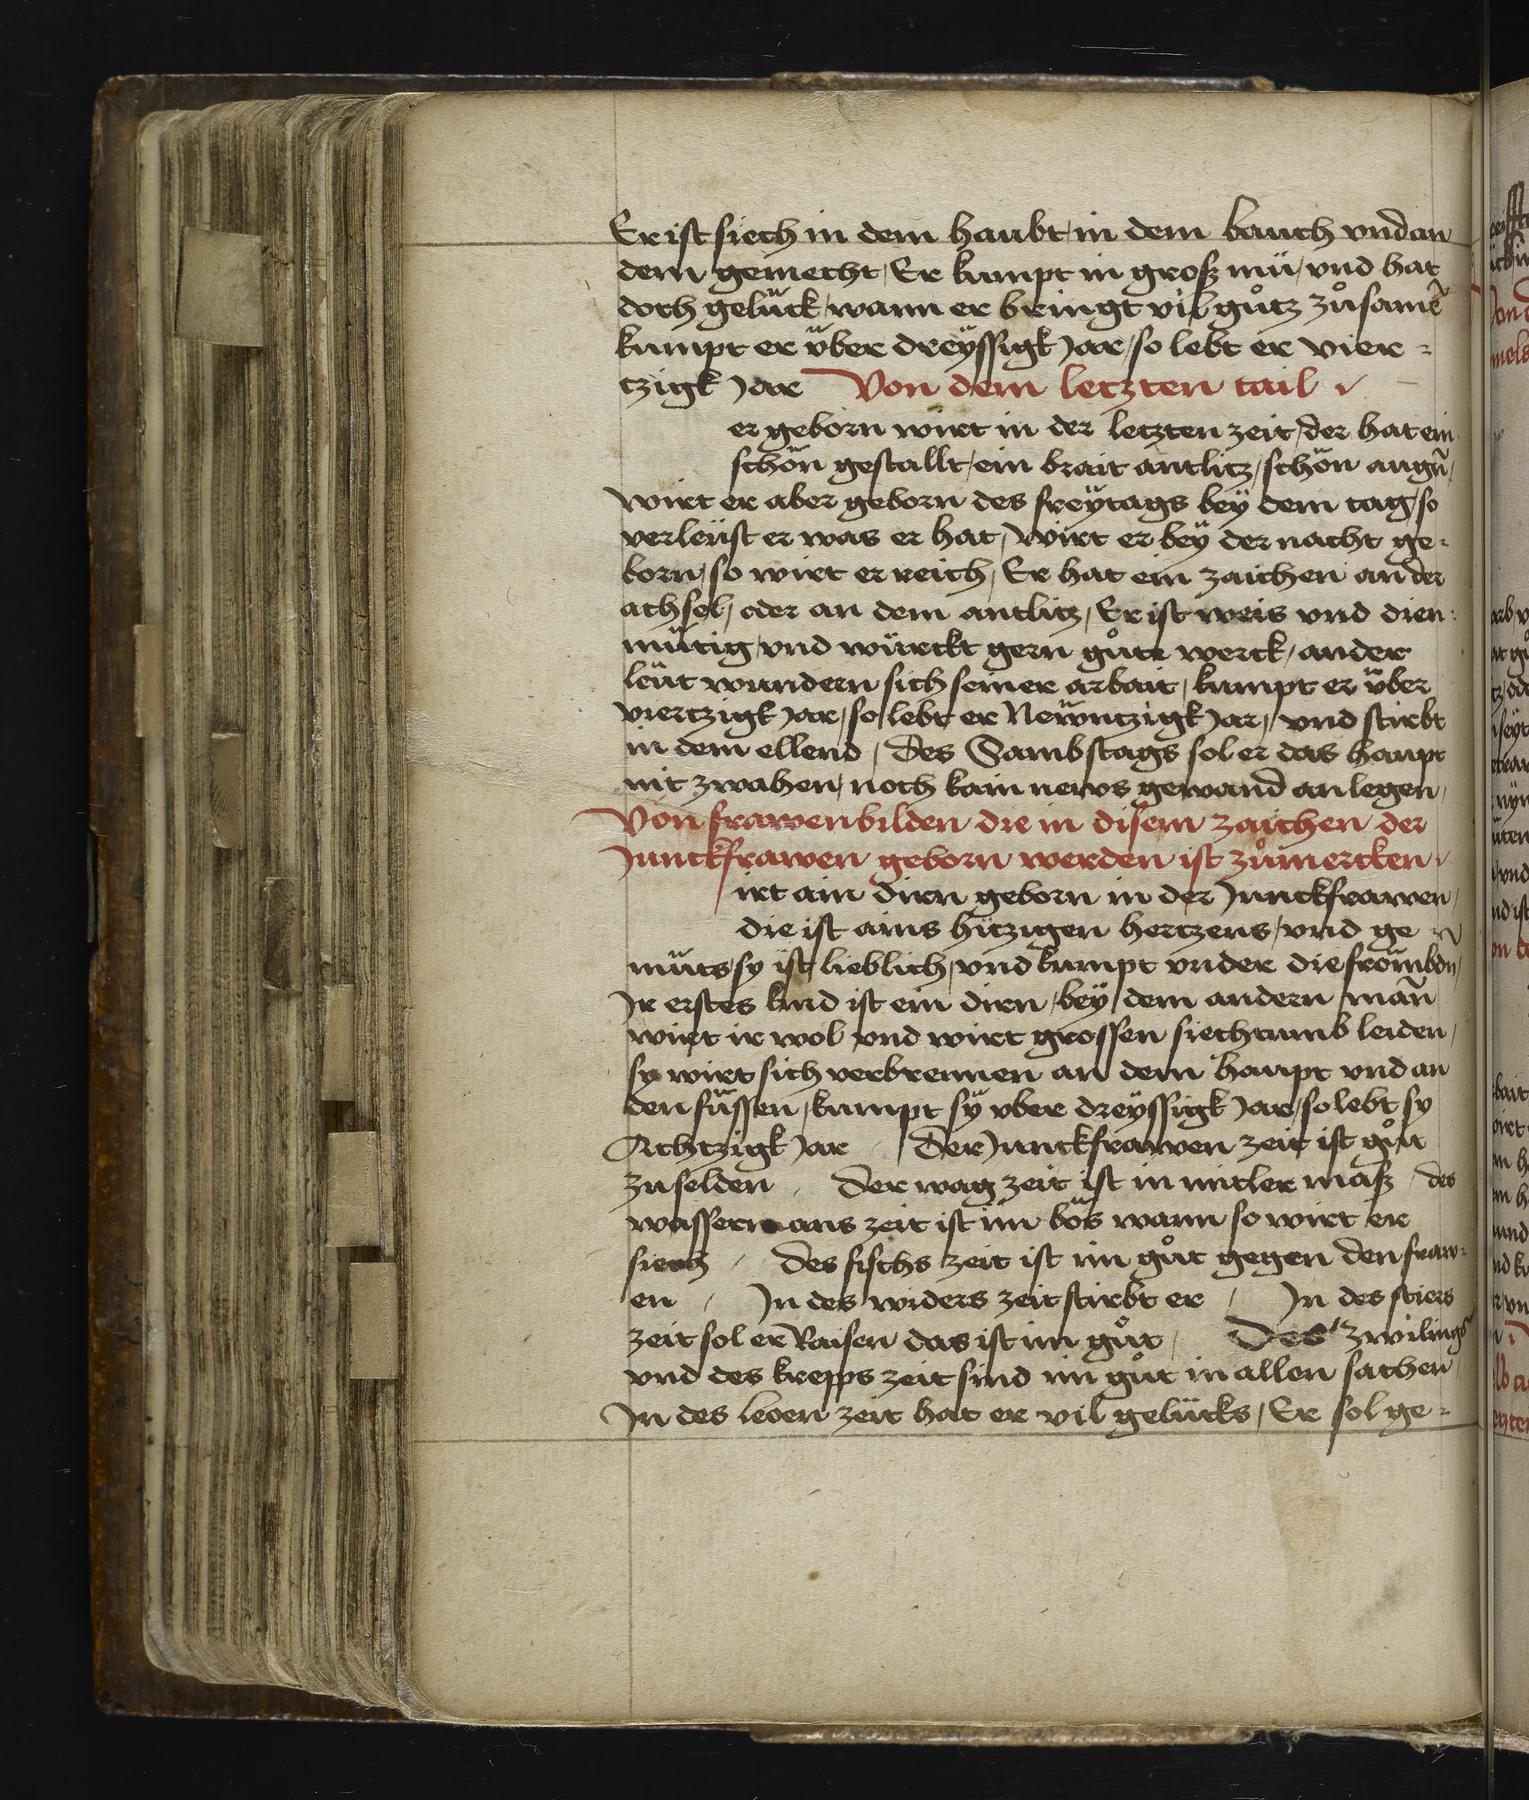 Er ist siech in dem haubt / in dem bauch vnd an
dem gemecht / Er kumpt in groß mü / vnd hat
doch gelück / wann er bringt vil gůtz zůsamē
kumpt er v̈ber dreÿssigk Jar / so lebt er vier =
tzigk Jar Von dem letzten tail
er geborn wirt in der letzten zeit / der hat ein
schön gestallt / ein brait antlitz / schön augn̄ /
wirt er aber geborn des freÿtags beÿ dem tag / so
verleüst er was er hat / Wirt er beÿ der nacht ge =
born / so wirt er reich / Er hat ein zaichen an der
achsel / oder an dem antlitz / Er ist weis vnd dien =
mütig / vnd würckt gern gůte werck / ander
leüt wundern sich seiner arbait / kumpt er v̈ber
viertzigk Jar / so lebt er Newntzigk Jar / vnd stirbt
in dem ellend / Des Sambstags sol er das haupt
nit zwahen / noch kain news gewand an legen /
Von frawenbilden die in disem zaichen der
Junckfrawen geborn werden ist zůmercken
irt ain dirn geborn in der Junckfrawen /
die ist ains hitzigen hertzens / vnd ge
müts / sy ist lieblich / vnd kumpt vnder die frömbdn /
Ir erstes kind ist ein dirn / beÿ dem andern man̄
wirt ir wol vnd wirt grossen siechtumb leiden /
sy wirt sich verbrennen an dem haupt vnd an
den füssen / kumpt sÿ vber dreÿssigk Jar / so lebt sy
Achtzigk Jar / Der Junckfrawen zeit ist gůt
zu selden / Der wag zeit ist in mitler maß / des
wassermans zeit ist im bös wann so wirt er
siech / Des fischs zeit ist im gůt gegen den fraw =
en / In des widers zeit stirbt er / In des stiers
zeit sol er Raisen das ist im gůt / Des zwilings
vnd des krepps zeit sind im gůt in allen sachen /
In des leoen zeit hat er vil gelücks / Er sol ge =